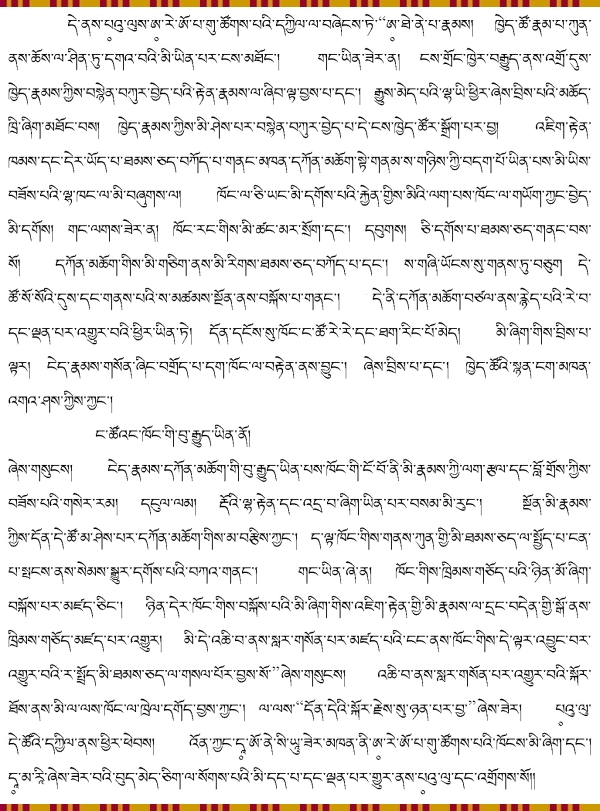 དེ་ནས་པཱུ་ལུས་ཨ་རེ་ཨོ་པ་གུ་ཚོགས་པའི་དཀྱིལ་ལ་བཞེངས་ཏེ་“ཨ་ཐེ་ནེ་པ་རྣམས། ཁྱེད་ཚོ་རྣམ་པ་ཀུན་
ནས་ཆོས་ལ་ཤིན་ཏུ་དགའ་བའི་མི་ཡིན་པར་ངས་མཐོང་། གང་ཡིན་ཟེར་ན། ངས་གྲོང་ཁྱེར་བརྒྱུད་ནས་འགྲོ་དུས་
ཁྱེད་རྣམས་ཀྱིས་བསྙེན་བཀུར་བྱེད་པའི་རྟེན་རྣམས་ལ་ཞིབ་ལྟ་བྱས་པ་དང་། རྒྱུས་མེད་པའི་ལྷ་ཡི་ཕྱིར་ཞེས་བྲིས་པའི་མཆོད་
ཁྲི་ཞིག་མཐོང་བས། ཁྱེད་རྣམས་ཀྱིས་མི་ཤེས་པར་བསྙེན་བཀུར་བྱེད་པ་དེ་ངས་ཁྱེད་ཚོར་སྒྲོག་པར་བྱ། འཇིག་རྟེན་
ཁམས་དང་དེར་ཡོད་པ་ཐམས་ཅད་བཀོད་པ་གནང་མཁན་དཀོན་མཆོག་སྟེ་གནམ་ས་གཉིས་ཀྱི་བདག་པོ་ཡིན་པས་མི་ཡིས་
བཟོས་པའི་ལྷ་ཁང་ལ་མི་བཞུགས་ལ། ཁོང་ལ་ཅི་ཡང་མི་དགོས་པའི་རྐྱེན་གྱིས་མིའི་ལག་པས་ཁོང་ལ་གཡོག་ཀྱང་བྱེད་
མི་དགོས། གང་ལགས་ཟེར་ན། ཁོང་རང་གིས་མི་ཚང་མར་སྲོག་དང་། དབུགས། ཅི་དགོས་པ་ཐམས་ཅད་གནང་བས་
སོ། དཀོན་མཆོག་གིས་མི་གཅིག་ནས་མི་རིགས་ཐམས་ཅད་བཀོད་པ་དང་། ས་གཞི་ཡོངས་སུ་གནས་ཏུ་བཅུག དེ་
ཚོ་སོ་སོའི་དུས་དང་གནས་པའི་ས་མཚམས་སྔོན་ནས་བསྐོས་པ་གནང་། དེ་ནི་དཀོན་མཆོག་བཙལ་ནས་རྙེད་པའི་རེ་བ་
དང་ལྡན་པར་འགྱུར་བའི་ཕྱིར་ཡིན་ཏེ། དོན་དངོས་སུ་ཁོང་ང་ཚོ་རེ་རེ་དང་ཐག་རིང་པོ་མེད། མི་ཞིག་གིས་བྲིས་པ་
ལྟར། ངེད་རྣམས་གསོན་ཞིང་བགྲོད་པ་དག་ཁོང་ལ་བརྟེན་ནས་བྱུང་། ཞེས་བྲིས་པ་དང་། ཁྱེད་ཚོའི་སྙན་ངག་མཁན་
འགའ་ཤས་ཀྱིས་ཀྱང་།
ང་ཚོའང་ཁོང་གི་བུ་རྒྱུད་ཡིན་ནོ།
ཞེས་གསུངས། ངེད་རྣམས་དཀོན་མཆོག་གི་བུ་རྒྱུད་ཡིན་པས་ཁོང་གི་ངོ་བོ་ནི་མི་རྣམས་ཀྱི་ལག་རྩལ་དང་བློ་གྲོས་ཀྱིས་
བཟོས་པའི་གསེར་རམ། དངུལ་ལམ། རྡོའི་ལྷ་རྟེན་དང་འདྲ་བ་ཞིག་ཡིན་པར་བསམ་མི་རུང་། སྔོན་མི་རྣམས་
ཀྱིས་དོན་དེ་ཚོ་མ་ཤེས་པར་དཀོན་མཆོག་གིས་མ་བརྩིས་ཀྱང་། ད་ལྟ་ཁོང་གིས་གནས་ཀུན་གྱི་མི་ཐམས་ཅད་ལ་སྤྱོད་པ་ངན་
པ་སྤངས་ནས་སེམས་སྒྱུར་དགོས་པའི་བཀའ་གནང་། གང་ཡིན་ཞེ་ན། ཁོང་གིས་ཁྲིམས་གཅོད་པའི་ཉིན་མོ་ཞིག་
བསྐོས་པར་མཛད་ཅིང་། ཉིན་དེར་ཁོང་གིས་བསྐོས་པའི་མི་ཞིག་གིས་འཇིག་རྟེན་གྱི་མི་རྣམས་ལ་དྲང་བདེན་གྱི་སྒོ་ནས་
ཁྲིམས་གཅོད་མཛད་པར་འགྱུར། མི་དེ་འཆི་བ་ནས་སླར་གསོན་པར་མཛད་པའི་ངང་ནས་ཁོང་གིས་དེ་ལྟར་འབྱུང་བར་
འགྱུར་བའི་ར་སྤྲོད་མི་ཐམས་ཅད་ལ་གསལ་པོར་བྱས་སོ”ཞེས་གསུངས། འཆི་བ་ནས་སླར་གསོན་པར་འགྱུར་བའི་སྐོར་
ཐོས་ནས་མི་ལ་ལས་ཁོང་ལ་ཁྲེལ་དགོད་བྱས་ཀྱང་། ལ་ལས་“དོན་དེའི་སྐོར་རྗེས་སུ་ཉན་པར་བྱ”ཞེས་ཟེར། པཱུ་ལུ་
དེ་ཚོའི་དཀྱིལ་ནས་ཕྱིར་ཕེབས། འོན་ཀྱང་དཱ་ཨོ་ནེ་སི་ཡཱུ་ཟེར་མཁན་ནི་ཨ་རེ་ཨོ་པ་གུ་ཚོགས་པའི་ཁོངས་མི་ཞིག་དང་།
དཱ་མ་རཱི་ཞེས་ཟེར་བའི་བུད་མེད་ཅིག་ལ་སོགས་པའི་མི་དད་པ་དང་ལྡན་པར་གྱུར་ནས་པཱུ་ལུ་དང་འགྲོགས་སོ།།